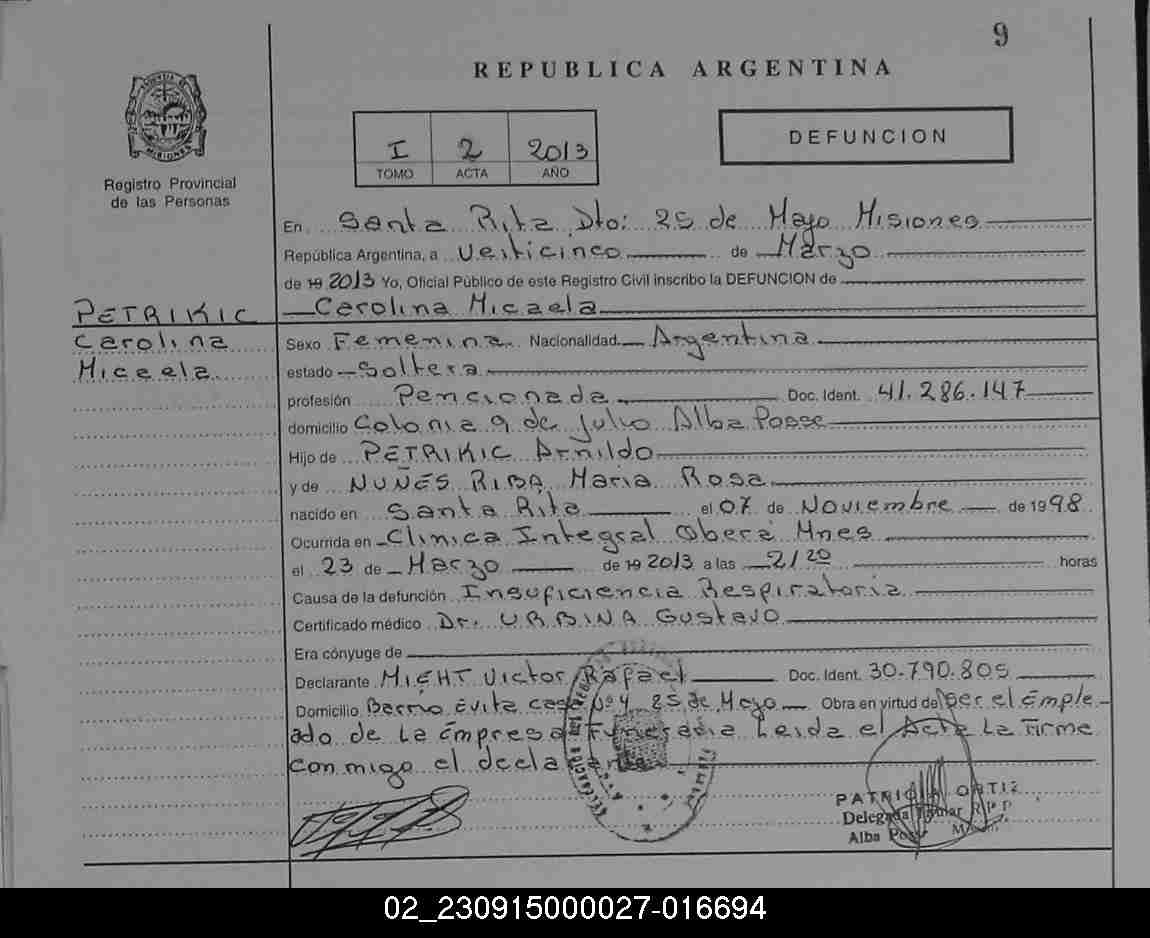 9
REPUBLICA ARGENTINA
MISIONES
Registro Provincial
de las Personas
I 2 2013
TOMO ACTA AÑO
DEFUNCION
En Santa Rita Dto: 25 de Mayo Misiones
República Argentina, a Veiticinco de Marzo
de 19 2013 Yo, Oficial Público de este Registro Civil inscribo la DEFUNCION de
PETRIKIC Carolina Micaela
Carolina
Micaela
Sexo Femenina Nacionalidad Argentina
estado Soltera
profesión Pencionada Doc. Ident. 41.286.147
domicilio Colonia 9 de Julio Alba Posse
Hijo de PETRIKIC Arnildo
y de NUÑES RIBA Maria Rosa
nacido en Santa Rita el 07 de Noviembre de 1998
Ocurrida en Clinica Integral Obera Mnes
el 23 de Marzo de 19 2013 a las 21/20 horas
Causa de la defunción Insuficiencia Respiratoria
Certificado médico Dr. URBINA Gustavo
Era cónyuge de
Declarante Victor Rafael Doc. Ident. 30.790.805
Domicilio Barrio Evita casa Nº 4 25 de Mayo Obra en virtud de ser el Emple-
ado de La Empresa Funeraria Leida el Acta La Firme
conmigo el declarante
PATRICIA ORTIZ
Delegada Titular R.P.P.
Alba Posse
02_230915000027-016694